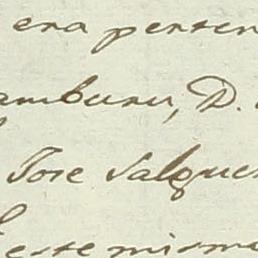 era perten
amburu, D.
Jose Salgue
este mismo